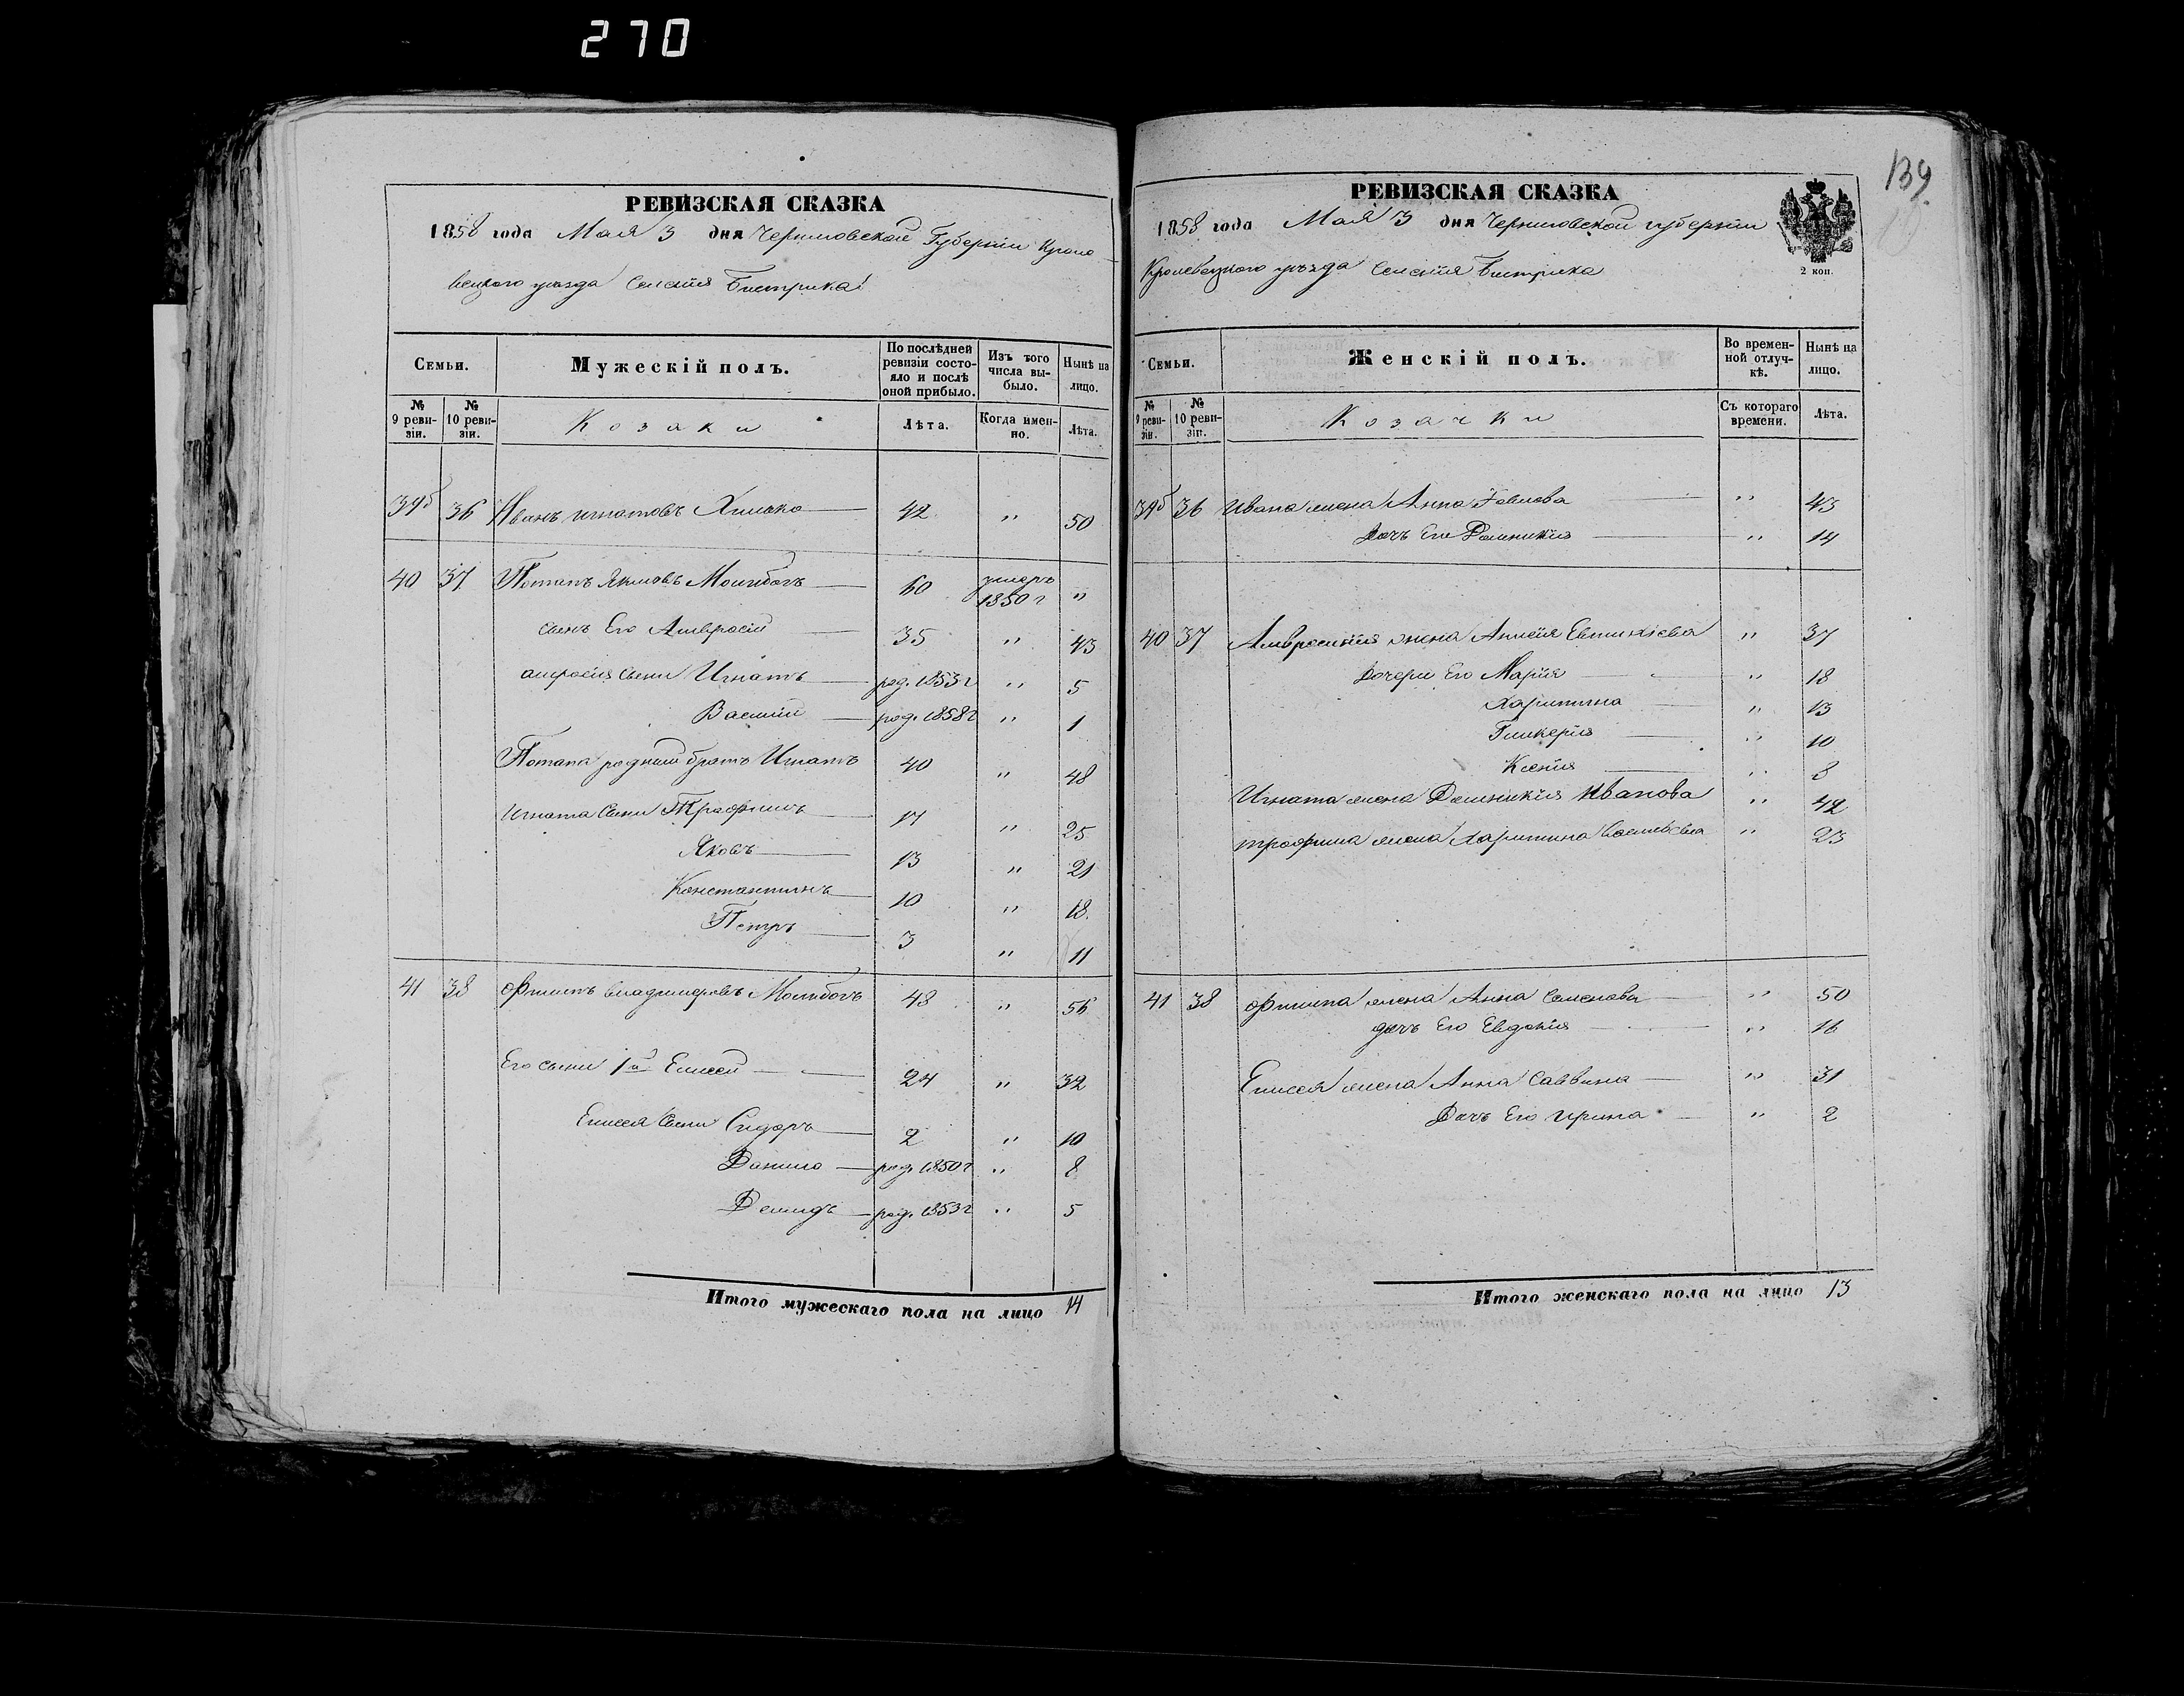 270
РЕВИЗСКАЯ СКАЗКА
1858 года Мая 3 дня Черниговской Губерніи Кроле-
вецкого уезда Селенія Быстрика
Семьи.
Мужескій полъ.
По послѣдней ревизіи состояло и послѣ оной прибыло.
Изъ того числа выбыло.
Нынѣ на лицо.
№ 9 ревизіи.
№ 10 ревизіи.
Козаки
Лѣта.
Когда именно.
Лѣта.
39б 36 Иванъ Игнатовъ Химко 42 " 50
40 37 Потапъ Якимовъ 60 умеръ 1850 г "
сынъ Его Амвросій 35 " 43
сыни Игнатъ род. 1853 г " 5
Василій род. 1858 г " 1
Потапа родный братъ Игнатъ 40 " 48
Игната Сыни Трофимъ 17 " 25
Яковъ 13 " 21
Константинъ 10 " 18
Петръ 3 " 11
41 38 Филипъ Владимеровъ 48 " 56
Его сыни 1й Елисей 24 " 32
Елисея Сыни Сидоръ 2 " 10
Данило род. 1850 г " 8
Демидъ род. 1853 г " 5
Итого мужескаго пола на лицо 14
139
РЕВИЗСКАЯ СКАЗКА
1858 года Мая 3 дня Черниговской губерніи
Кролевецкого уезда Селенія Быстрика
2 коп.
Семьи.
Женскій полъ.
Во временной отлучкѣ.
Нынѣ на лицо.
№ 9 ревизіи.
№ 10 ревизіи.
Козачки
Съ котораго времени.
Лѣта.
39б 36 Ивана жена Анна " 43
Дочъ Его Домникія " 14
40 37 Амвросія жена Евтихіева " 37
Дочери Его Марія " 18
Харитина " 13
Гликерія " 10
Ксенія " 8
Игната жена Домникія Иванова " 42
Трофима жена Харитина " 23
41 38 Филипа жена Анна Семенова " 50
дочъ Его Евдокія " 16
Елисея жена Анна Саввина " 31
Дочъ Его Ирина " 2
Итого женскаго пола на лицо 13